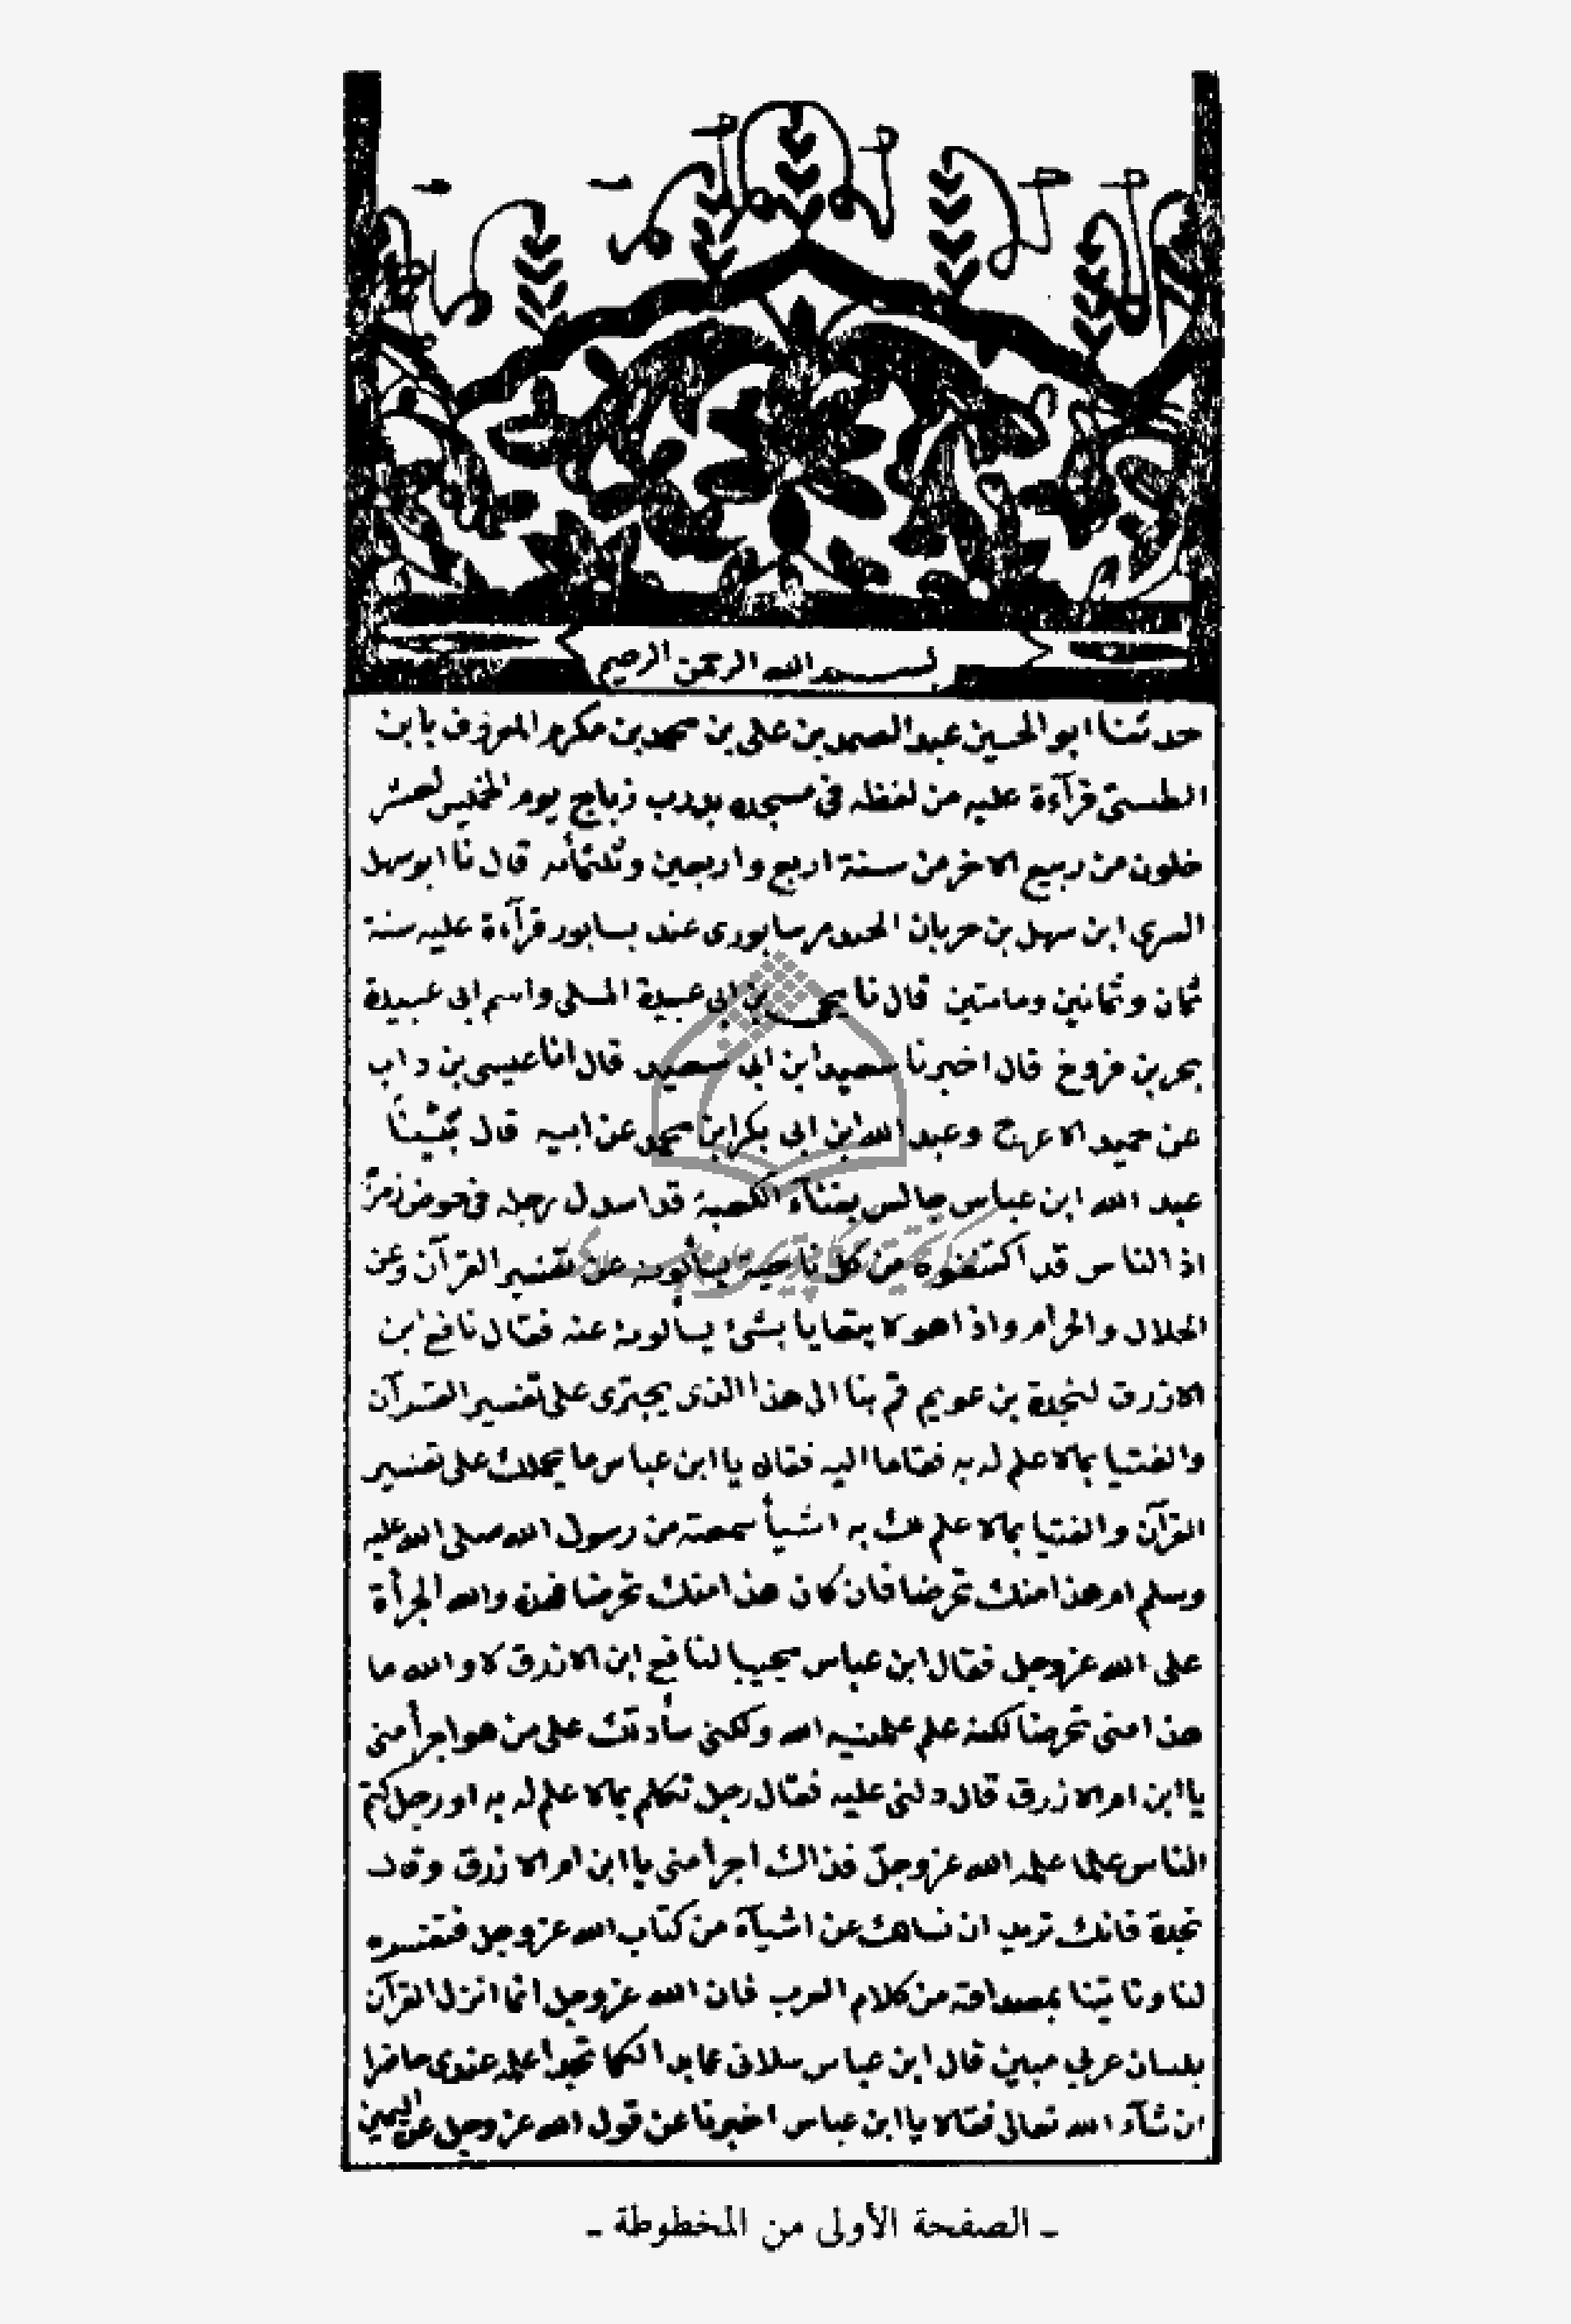 بسم الله الرحمن الرحيم
حدثنا ابو الحسين عبد الصمد بن على بن محمد بن مكرم المعروف بابن
الطستى قرآءة عليه من لفظه فى مسجده بدرب زباج يوم الخميس لعشر
خلون من ربيع الاخر من سنة اربع واربعين وثلثمأىه قال نا ابو سهل
السرى ابن سهل بن حربان الجند سابورى عند بسابور قرآءة عليه سنة
ثمان وثمانين ومامتين قال نا يحيى بن ابى عبيدة المسلى واسم ابى عبيدة
بحر بن فروخ قال اخبرنا سعيد ابن ابى سعيد قال انا عيسى بن داب
عن حميد الاعرج وعبد الله ابن ابى بكر ابن محمد عن ابيه قال بَيْنَا
عبد الله ابن عباس جالس بفنآء الكعبة قد اسدل رجله فى حوض زمزم
اذ الناس قد اكتنفوه من كل ناحية يسألونه عن تفسير القرآن وعن
الحلال والحرام واذا هو لا يتعايا بشئ يسألونه عنه فقال نافع ابن
الازرق لنجدة بن عويم قم بنا الى هذا الذى يجترى على تفسير القرآن
والفتيا بمالا علم له به فقاما اليه فقالا يا ابن عباس ما يحملك على تفسير
القرآن والفتيا بمالا علم لك به اشيأ سمعته من رسول الله صلى الله عليه
وسلم ام هذا منك تخرصا فان كان هذا منك تخرصا فهذه والله الجرأة
على الله عز وجل فقال ابن عباس مجيبا لنافع ابن الازرق لا والله ما
هذا منى تخرصا لكنه علم علمنيه الله ولكنى سأدلك على من هو اجرأ منى
يا ابن ام الازرق قال دلنى عليه فقال رجل تكلم بمالا علم له به او رجل كتم
الناس علما علمه الله عز وجل فذاك اجرأ منى يا ابن ام الازرق وقال
نجدة فانك تريد ان نسالك عن اشيآء من كتاب الله عز وجل فتفسره
لنا وتاتينا بمصداقه من كلام العرب فان الله عز وجل انما انزل القرآن
بلسان عربي مبين قال ابن عباس سلانى عما بدا لكما تجدا علمه عندى حاضرا
ان شآء الله تعالى فقالا يا ابن عباس اخبرنا عن قول الله عز وجل عن اليمين
ـ الصفحة الأولى من المخطوطة ـ